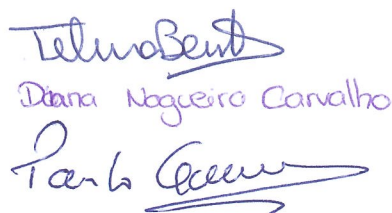 Telma Bento
Diana Nogueiro Carvalho
Paulo